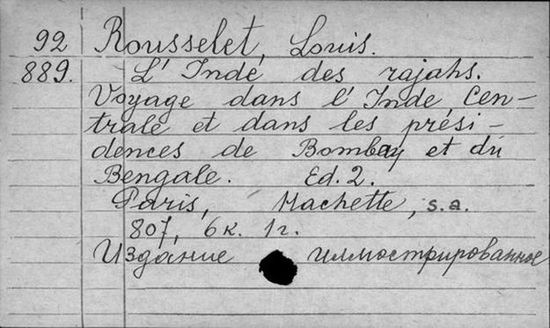 92 Rousselet, Louis.
889. L'Inde des rajahs.
Voyage dans l'Inde Cen-
trale et dans les prési-
dences de Bombay et du
Bengale. Ed. 2.
Paris, Hachette, s.a.
807, 6к. 1г.
Издание иллюстрированное